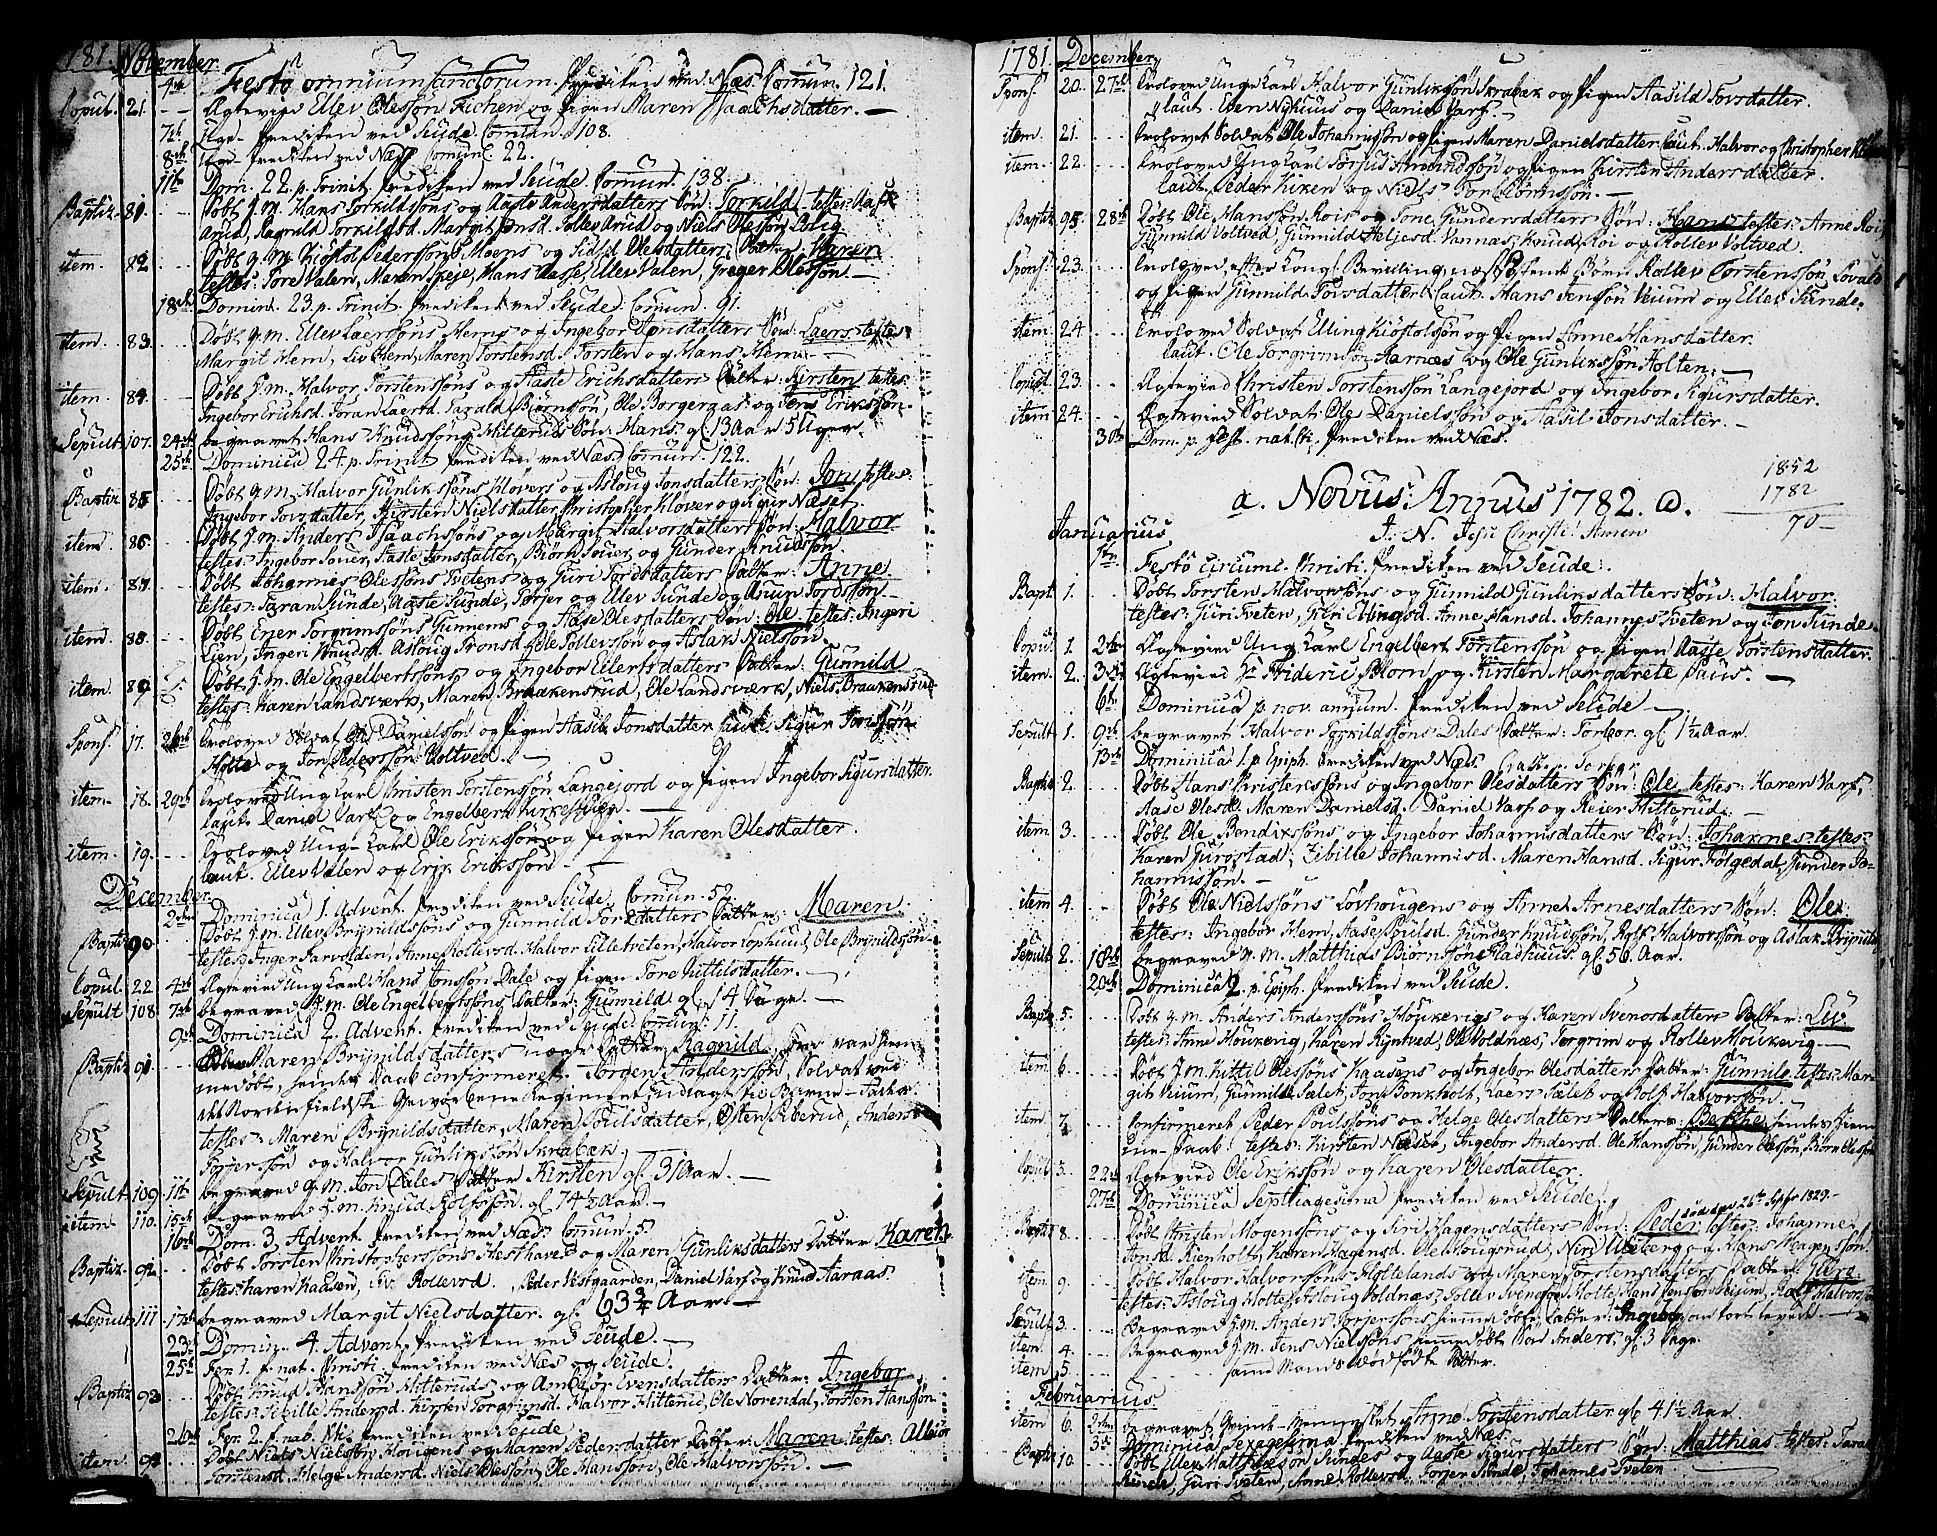 1781. November
4de Festo omnium Sanctorum. Prædiken ved Næs. Comun. 121.
Copul. 21. Ægtevied Ellev Olessøn Kichen og Pigen Maren Isaachsdatter.
7de Prædiken ved Seude. Comun. 108.
8de Prædiken ved Næs. Comun. 22.
11te Dom. 22. p. Trinit. Prædiken ved Seude. Comun. 138.
Baptiz. 81. Døbt J. M. Hans Torkildsøns og Aaste Andersdatters Søn: Torkild. testes: Aase
Arud, Ragnild Torkilsd. Margit Jonsd. Tollev Arud og Niels Olessøn Bolig
item. 82. Døbt g. M. Kiøstol Pedersøns Moens og Sidsel Olesdatters Datter: Maren
testes: Tore Valen, Maren Speje, Hans Aasse, Ellev Valen, Greger Olessøn.
18de Domin. 23. p. Trinit. Prædiken ved Seude. Comun. 91.
item. 83. Døbt g. M. Ellev Laerssøns Hems og Ingebor Jonsdatters Søn: Laers. testes
Margit Hem, Liv Hem, Maren Torstensd. Torsten og Hans Hem.
item. 84. Døbt J. M. Halvor Torstenssøns og Aaste Erichsdatters Datter: Kirsten testes:
Ingebor Erichsd. Joran Laersd. Tarald Biørnssøn, Ole Borgeraas og Jens Erikssøn.
Sepult. 107. 24de begravet Hans Knudssøns Hitteruds Søn: Hans gl. 13 Aar 5 Uger.
25de Dominica 24. p. Trinit. Prædiken ved Næs. Comun. 122.
Baptiz. 85. Døbt g. M. Halvor Gunlikssøns Kløvers og Asloug Jonsdatters Søn: Jon testes:
Ingebor Tovsdatter, Kirsten Nielsdatter, Christopher Kløver og Sigur Næset.
item. 86. Døbt J. M. Anders Isaachssøns og Margit Halvorsdatters Søn: Halvor
testes: Ingebor Souer, Aaste Jonsdatter, Biørn Souer og Gunder Knudssøn.
item. 87. Døbt Johannes Olessøns Tvetens og Guri Tordsdatters Datter: Anne
testes: Taran Sunde, Aaste Sunde, Torjer og Ellev Sunde og Anun Tordssøn
item 88. Døbt Erjer Torgrimssøns Gunnems og Aase Olesdatters Søn: Ole testes: Ingeri
Lien, Ingeri Knudsd. Asloug Tronsd. Ole Tollevssøn og Aslak Nielssøn.
item. 89. Døbt J. M. Ole Engelbertssøns og Ingebor Ellefsdatters Datter: Gunnild
testes: Karen Landsværk, Maren Braakensrud, Ole Landsværk, Niels Braakensrud
Spons. 17. Troloved Soldat Ole Danielssøn og Pigen Aasil Jonsdatter Caut. Sigur Tovssøn
Holte og Jon Pederssøn Voltved.
item. 18. 29de Troloved Ung Karl Christen Torstenssøn Langejord og Pigen Ingebor Sigursdatter.
Caut. Daniel Varp og Engelbert Kirkestuen
item. 19. Troloved Ung-Karl Ole Erikssøn og Pigen Karen Olesdatter.
Caut. Ellev Valen og Erik Erikssøn
December.
2den Dominica 1. Advent. Prædiken ved Seude. Comun. 52.
Baptiz 90. Døbt J. M. Ellev Brynildssøns og Gunnild Tordsdatters Datter: Maren.
testes: Inger Farvolden, Anne Rollevsd. Halvor Lilletveten, Halvor Tophuus, Ole Brynildssøn
Copul. 22. 4de Ægtevied Ung Karl Hans Jonssøn Dale og Pigen Tore Kittilsdatter.
Sepult 108. 7de begraved J. M. Ole Engelbertssøns Datter: Gunnild gl. 14 Dage.
9de Dominica 2. Advent. Prædiken ved Seude. Comun. 11.
Baptiz 91. Maren Brynildsdatters uægte Datter: Ragnild, som var hiem-
medøbt, hendes Daab confirmeret. Jørgen Haldorssøn, Soldat ved
det Nordenfieldske Gevorbene Regiment Udlagt til Barne-Fader
testes: Maren Brynildsdatter, Maren Poulsdatter, Osten Aaberud, Anders
Torjerssøn og Halvor Gunlikssøn Skrabak.
Sepult. 109. 11te begraved g. M. Jon Dales Datter Kirsten gl. 31 Aar.
item. 110. 15de begraved J. M. Knud Rolfssøn gl. 74½ Aar.
16de Dom. 3. Advent. Prædiken ved Næs. Comun. 5.
Baptiz. 92. Døbt Torsten Christopherssøns Hesthaves og Maren Gunliksdatters Datter Karen.
testes: Karen Kaasen, Liv Rollevsd. Peder Vestgaarden, Daniel Varp og Knud Aaraas.
Sepult 111 17de begraved Margit Nielsdatter. gl. 63¾ Aar.
23de Domin. 4. Advent. Prædiken ved Seude.
25de Fer. 1. f. nat. Christi. Prædiken ved Næs og Seude.
Baptiz 93 Døbt Knud Hanssøn Hitteruds og Ambiør Evensdatters Datter: Ingebor
testes: Sibille Andersd. Kirsten Torgrimsd. Halvor Hitterud, Ole Norendal, Torsten Hanssøn.
26de Fer. 2. f. nat. Chr. Prædiken ved Seude
item 94. Døbt Niels Nielssøn Hougens og Maren Pedersdatter Datter: Maren. testes: Albiør
Torstensd. Helge Andersd. Niels Olessøn, Ole Hanssøn, Ole Halvorssøn.
1781. December
Spons. 20. 27de Troloved Unge Karl Halvor Gunlikssøn Skrabak og Pigen Aasild Tovsdatter.
Caut. Even Nyhuus og Daniel Varp.
item. 21. Trolovet Soldat Ole Johannessøn og Pigen Maren Danielsdatter Caut. Halvor og Christopher
item. 22. Troloved Ung Karl Torjus Amundssøn og Pigen Kirsten Andersdatter.
Caut. Peder Kiken og Niels Torbiørnssøn.
Baptiz. 95. 28de Døbt Ole Hanssøn Rois og Tone Gundersdatters Søn: Hans testes: Anne Roi,
Gunnild Voltved, Gunnild Heljesd. Vannas, Knud Roi og Rollev Voltved.
Spons. 23. Troloved, efter Kongl. Bevilling, næstsødskende Børn Rollev Torstenssøn Lovald
og Pigen Gunnild Tovsdatter. Caut. Hans Jenssøn Veium og Ellev Sunde.
item 24. Troloved Soldat Elling Kiøstolssøn og Pigen Anne Hansdatter.
Caut. Ole Torgrimssøn Aarnes og Ole Gunlikssøn Holten.
Copul. 23. Ægtevied Christen Torstenssøn Langejord og Ingebor Sigursdatter.
item 24. Ægtevied Soldat Ole Danielssøn og Aasil Jonsdatter.
30te Dom. p. Fest. nat. Chr. Prædiken ved Næs.
1852
1782
70
a. Novus. Annus 1782. ω.
I. N. Jesu Christi! Amen
Januarius
1ste Festo Circumc. Christi. Prædiken ved Seude.
Bapt. 1. Døbt Torsten Halvorssøns og Gunnild Gunliksdatters Søn: Halvor.
testes: Guri Tveten, Siri Ellingsd. Anne Hansd. Johannes Tveten og Jon Sunde.
Copul. 1. 2den Ægtevied Ung Karl Engelbert Torstenssøn og Pigen Aasse Torstensdatter.
item. 2. 3die Ægtevied Hr. Frideric Blom og Kirsten Margarete Paus.
6te Dominica p. nov. annum. Prædiken ved Seude
Sepult 1. 9de begravet Halvor Torkildssøns Dales Datter: Torbor. gl. 1½ Aar.
13de Dominica 1. p. Epiph. Prædiken ved Næs.
Baptiz 2. Døbt Hans Christenssøns og Ingebor Olesdatters Søn: Ole testes: Karen Varp,
Aase Olesd. Maren Danielsd. Daniel Varp og Reier Hitterud.
item 3. Døbt Ole Bendixsøns og Ingebor Johannisdatters Søn: Johannes testes:
Karen Gurostad, Zibille Johannisd. Maren Hansd. Sigur Følgedal, Gunder Jo-
hannissøn.
item 4. Døbt Ole Nielssøns Lovhougens og Anne Arnesdatters Søn: Ole
testes: Ingebor Hem, Aase Poulsd. Gunder Knudssøn, Rolf Halvorssøn og Aslak Brynilds.
Sepult 2. 18de begraved g. M. Matthias Biørnssøn Fladhuus. gl. 56 Aar.
20de Dominica 2. p. Epiph. Prædiken ved Seude.
Baptz 5. Døbt g. M. Anders Anderssøns Houkevigs og Karen Svenosdatters Datter: Liv.
testes: Anne Houkevig, Karen Ryntved, Ole Voldnæs, Torgrim og Rollev Houkevig
item 6. Døbt J. M. Kittil Olessøns Kaasens og Ingebor Olesdatters Datter: Gunnild testes: Mar-
git Veium, Gunnild Sælet, Tone Bonkholt, Laers Sælet og Rolf Halvorssøn.
item 7. Confirmeret Peder Poulssøns og Helge Olesdatters Datters: Berthe hendes hiem-
me-Daab: testes: Kirsten Næset, Ingebor Andersd. Ole Hanssøn, Gunder Olessøn, Biørn Olessøn
Copul. 3. 22de Ægtevied Ole Erikssøn og Karen Olesdatter.
27de Dominica Septuagesima Prædiken ved Seude.
død den 26de Septbr 1829.
Baptz 8. Døbt Christen Mogenssøns og Siri Hagensdatters Søn: Peder testes: Johanne
Jonsd. Kienholt, Karen Hagensd. Ole Hougsrud, Niri Ubeberg og Hans Hagenssøn.
item. 9. Døbt Halvor Halvorssøns Holtelands og Maren Torstensdatters Datter: Guro:
testes: Asloug Holte, Asloug Voldnæs, Tollev Svenssøn Holte, Hans Jenssøn Veium, Rolf Halvorss.
Sepult 3. Begraved J. M. Anders Torjerssøns hiemmedøbt Datter: Ingebor, som kort levede.
item. 4. Begraved J. M. Jens Nielssøns hiemmedøbt Søn Anders gl. 3 Dage.
item 5. samme Mands dødfødte Datter.
Februarius.
item 6. 2den begravet Qvinde-Mennisket Anne Torstensdatter gl. 41½ Aar.
3die Dominica Sexagesima Prædiken ved Næs.
Baptz 10. Døbt Ellev Matthissøn Sundes og Aaste Sigursdatters Søn: Matthias testes: Taran
Sunde, Guri Tveten, Anne Rollevsd. Torjer Sunde, Johannes Tveten